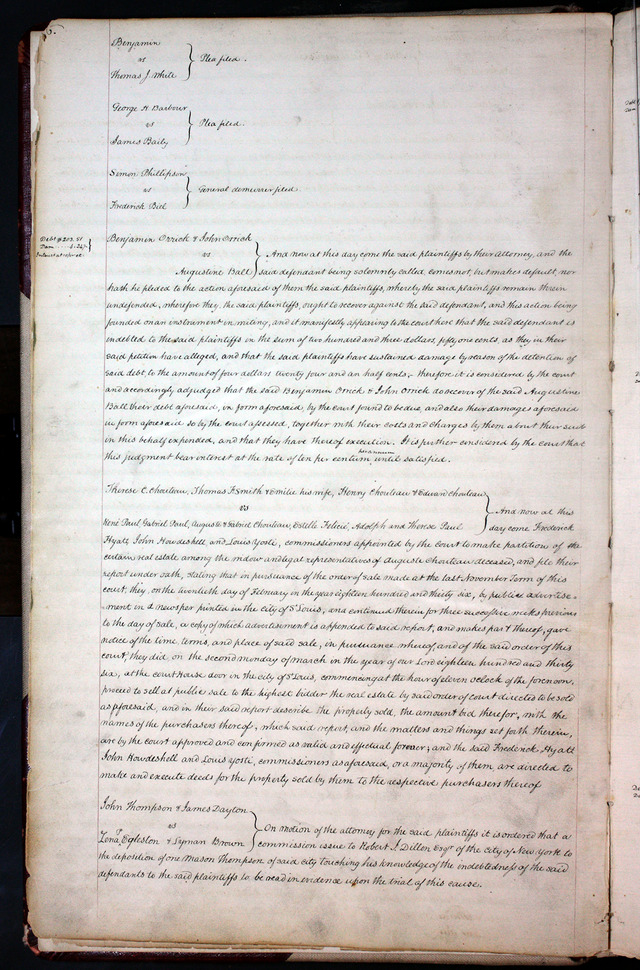 Benjamin
vs } Plea filed.
Thomas J. White
George A Barbour
vs } Plea filed.
James Baily
Simon Phillipson
vs } General demurrer filed
Frederick Biel
Debt $203.51
Dam 4.24½
Benjamin Orrick & John Orrick
vs } And now at this day come the said plaintiffs by their Attorney, and the
Augustine Ball said defendant being solemnly called, comes not, but makes default, nor
hath he pleded to the action aforesaid of them the said plaintiffs, whereby the said plaintiffs remain therein
undefended, wherefore they, the said plaintiffs, ought to recover against the said defendant, and this action being
founded on an instrument in writing, and it manifestly appearing to the court here that the said defendant is
indebted to the said plaintiffs in the sum of two hundred and three dollars fifty one cents, as they in their
said petition have alleged, and that the said plaintiffs have sustained damage by reason of the detention of
said debt to the amount of four dollars twenty four and an half cents;- Therefore it is considered by the court
and accordingly adjudged that the said Benjamin Orrick & John Orrick do recover of the said Augustine
Ball their debt aforesaid, in form aforesaid, by the court found to be due, and also their damages aforesaid
in form aforesaid so by the court assessed, together with their costs and charges by them about their suit
in this behalf expended, and that they have thereof execution. It is further considered by the court that
this judgment bear interest at the rate of ten per centum per annum until satisfied.
Therese C. Chouteau, Thomas F. Smith & Emilie his wife, Henry Chouteau & Edward Chouteau
vs } And now at this
René Paul, Gabriel Paul, Auguste & Gabriel Chouteau, Estelle Felicie, Adolph and Therese Paul day come Frederick
Hyatt, John Howdeshell, and Louis Yosti, commissioners appointed by the court to make partition of the
certain real estate among the widow and legal representatives of Auguste Chouteau deceased, and file their
report under oath, stating that in pursuance of the order of sale made at the last November Term of this
court, they, on the twentieth day of February in the year eighteen hundred and thirty six, by public advertise-
ment in a newsper printed in the city of St Louis, and continued therein for three successive weeks previous
to the day of sale, a copy of which advertisement is appended to said report, and makes part thereof, gave
notice of the time, terms, and place of said sale; in pursuance whereof and of the said order of this
court, they did, on the second monday of march in the year of our Lord eighteen hundred and thirty
six, at the court House door in the city of St Louis, commencing at the hour of eleven oclock of the forenoon,
proceed to sell at public sale to the highest bidder the real estate by said order of court directed to be sold
as aforesaid, and in their said report describe the property sold, the amount bid therefor, with the
names of the purchasers thereof, which said report, and the matters and things set forth therein,
are by the court approved and confirmed as valid and effectual forever; and the said Frederick Hyatt
John Howdeshell and Louis Yosti, commissioners as aforesaid, or a majority of them, are directed to
make and execute deeds for the property sold by them to the respective purchasers thereof
John Thompson & James Dayton
vs } On motion of the attorney for the said plaintiffs it is ordered that a
Egleston & Lyman Brown commission issue to Robert J. Dillon Esqr. of the city of New York to
the deposition of one Mason Thompson of said city touching his knowledge of the indebtedness of the said
defendants to the said plaintiffs to be read in evidence upon the trial of this cause.